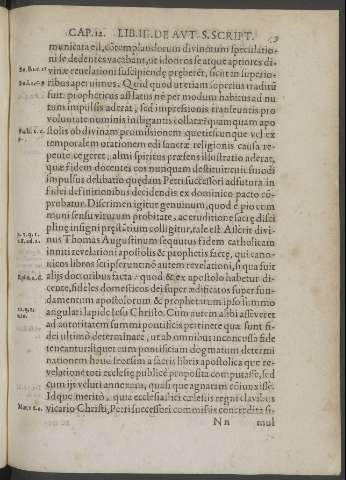 CAP. 12. LIB. II. DE AVT. S. SCRIPT.
municata est, cōtemplandorum divinorum
ni se dedentes vacabant, ut idoneos se atque aptiores di-
vinæ revelationi suscipiendę pręberēt, sicut in superio-
ribus aperuimus. Quid quod ut etiam superius traditū
fuit: propheticus afflatus nō per modum habitus ad nu
tum impulsis aderat, sed impressionis transeuntis pro
voluntate numinis indigantis collatæ: quamquam apo
stolis ob divinam promissionem quotiescunque vel ex
temporalem orationem edi sanctæ religionis causa re-
pente egeret, almi spiritus præsens illustratio aderat,
quæ fidem docentes eos nunquam destitueret: sic suo id
impulsu delibatio quędam Petri successori adfutura in
fidei definitionibus decidendis ex dominico pacto cō-
probatur. Discrimen igitur genuinum, quod é pio com
muni sensu vitarum probitate, ac eruditione sacrę disci
plinę insigni pręstantium colligitur, tale est. Asserit divi-
nus Thomas Augustinum sequutus fidem catholicam
inniti revelationi apostolis & prophetis factę, qui cano-
nicos libros scripserunt: nō autem revelationi, si qua fuit
alijs doctoribus facta: quod & ex apostolo habetur di-
cente, fideles domesticos dei superædificatos super fun-
damentum apostolorum & prophetarum ipso summo
angulari lapide Iesu Christo. Cum autem alibi asseveret
ad autoritatem summi pontificis pertinere quæ sunt fi-
dei ultimò determinare, ut ab omnibus inconcussa fide
teneantur: liquet eum pontificiam dogmatum determi
nationem haud seorsim a sacris libris apostolica que re-
velatione toti ecclesię publicè proposita computasse, sed
cum ijs veluti annexam, quasi que agnatam cōiunxisse.
Id que meritò, quia ecclesiastici cælestis regni clavibus
vicario Christi, Petri successori commissis concredita si-
N n mul